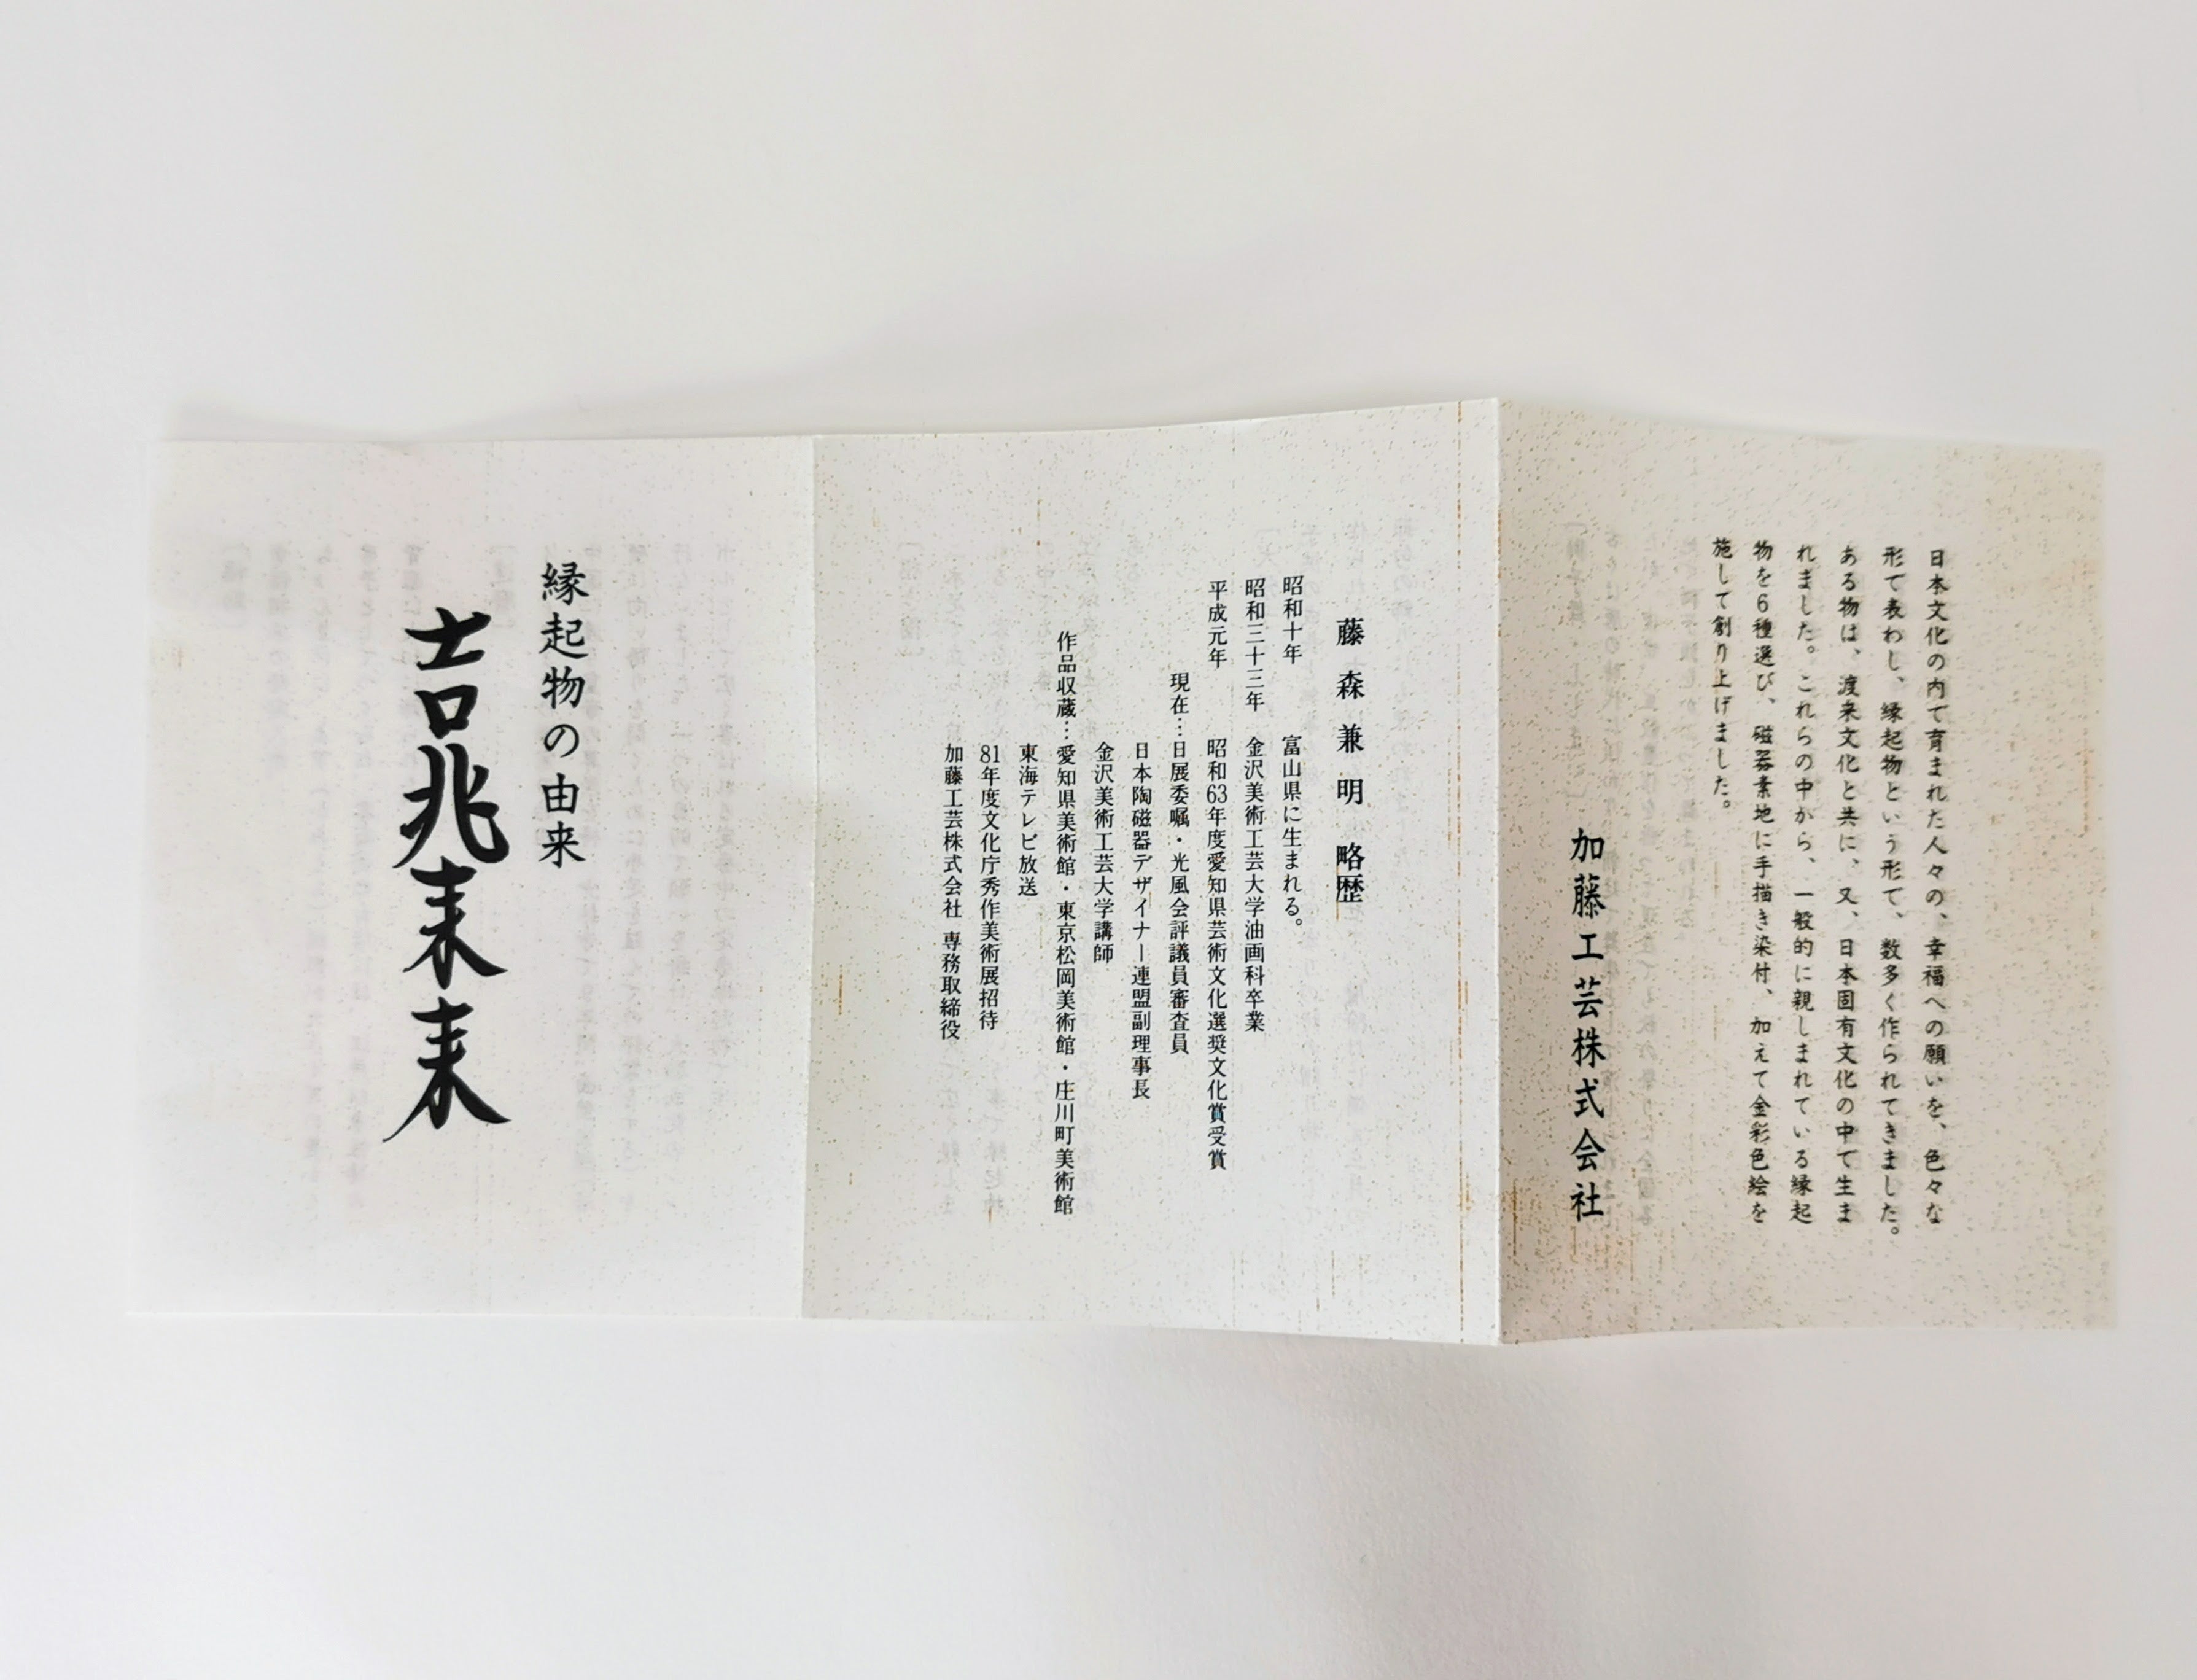 日本文化の内で育まれた人々の、幸福への願いを、色々な
形で表わし、縁起物という形で、数多く作られてきました。
ある物は、渡来文化と共に、又、日本固有文化の中で生ま
れました。これらの中から、一般的に親しまれている縁起
物を6種選び、磁器素地に手描き染付、加えて金彩色絵を
施して創り上げました。
加藤工芸株式会社
藤森兼明 略歴
昭和十年 富山県に生まれる。
昭和三十三年 金沢美術工芸大学油画科卒業
平成元年 昭和63年度愛知県芸術文化選奨文化賞受賞
現在…日展委嘱・光風会評議員審査員
日本陶磁器デザイナー連盟副理事長
金沢美術工芸大学講師
作品収蔵…愛知県美術館・東京松岡美術館・庄川町美術館
東海テレビ放送
81年度文化庁秀作美術展招待
加藤工芸株式会社 専務取締役
縁起物の由来
吉兆